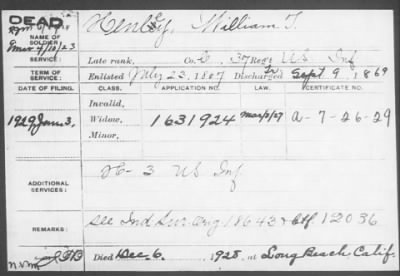 DEAD
NAME OF SOLDIER: Henley, William T.
SERVICE: Late rank, Co. C, 37 Reg't US Inf
TERM OF SERVICE: Enlisted July 23, 1867 Discharged Sept 9, 1869
DATE OF FILING. CLASS. APPLICATION NO. LAW. CERTIFICATE NO.
Invalid,
1929 Jan. 3, Widow, 1631924 Mar/3/27 A-7-26-29
Minor,
ADDITIONAL SERVICES: H-3 US Inf
REMARKS: See Ind Sur. Orig 18643 & Ctf. 12036
Died Dec. 6, 1928, at Long Beach, Calif.